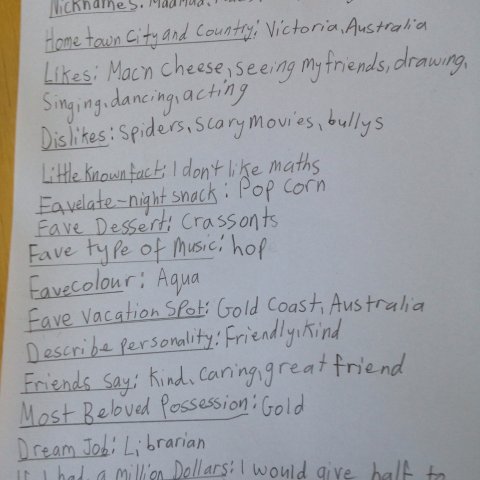 Nicknames:
Home town City and Country: Victoria, Australia
Likes: Mac'n Cheese, seeing my friends, drawing,
Singing, dancing, acting
Dislikes: Spiders, Scary Movies, bullys
Little known fact: I don't like maths
Fave late-night snack: Pop corn
Fave Dessert: Crassonts
Fave type of Music: hop
Fave colour: Aqua
Fave Vacation Spot: Gold Coast, Australia
Describe personality: Friendly, Kind
Friends say: Kind, Caring, great friend
Most Beloved Possession: Gold
Dream Job: Librarian
If I had a Million Dollars: I would give half to